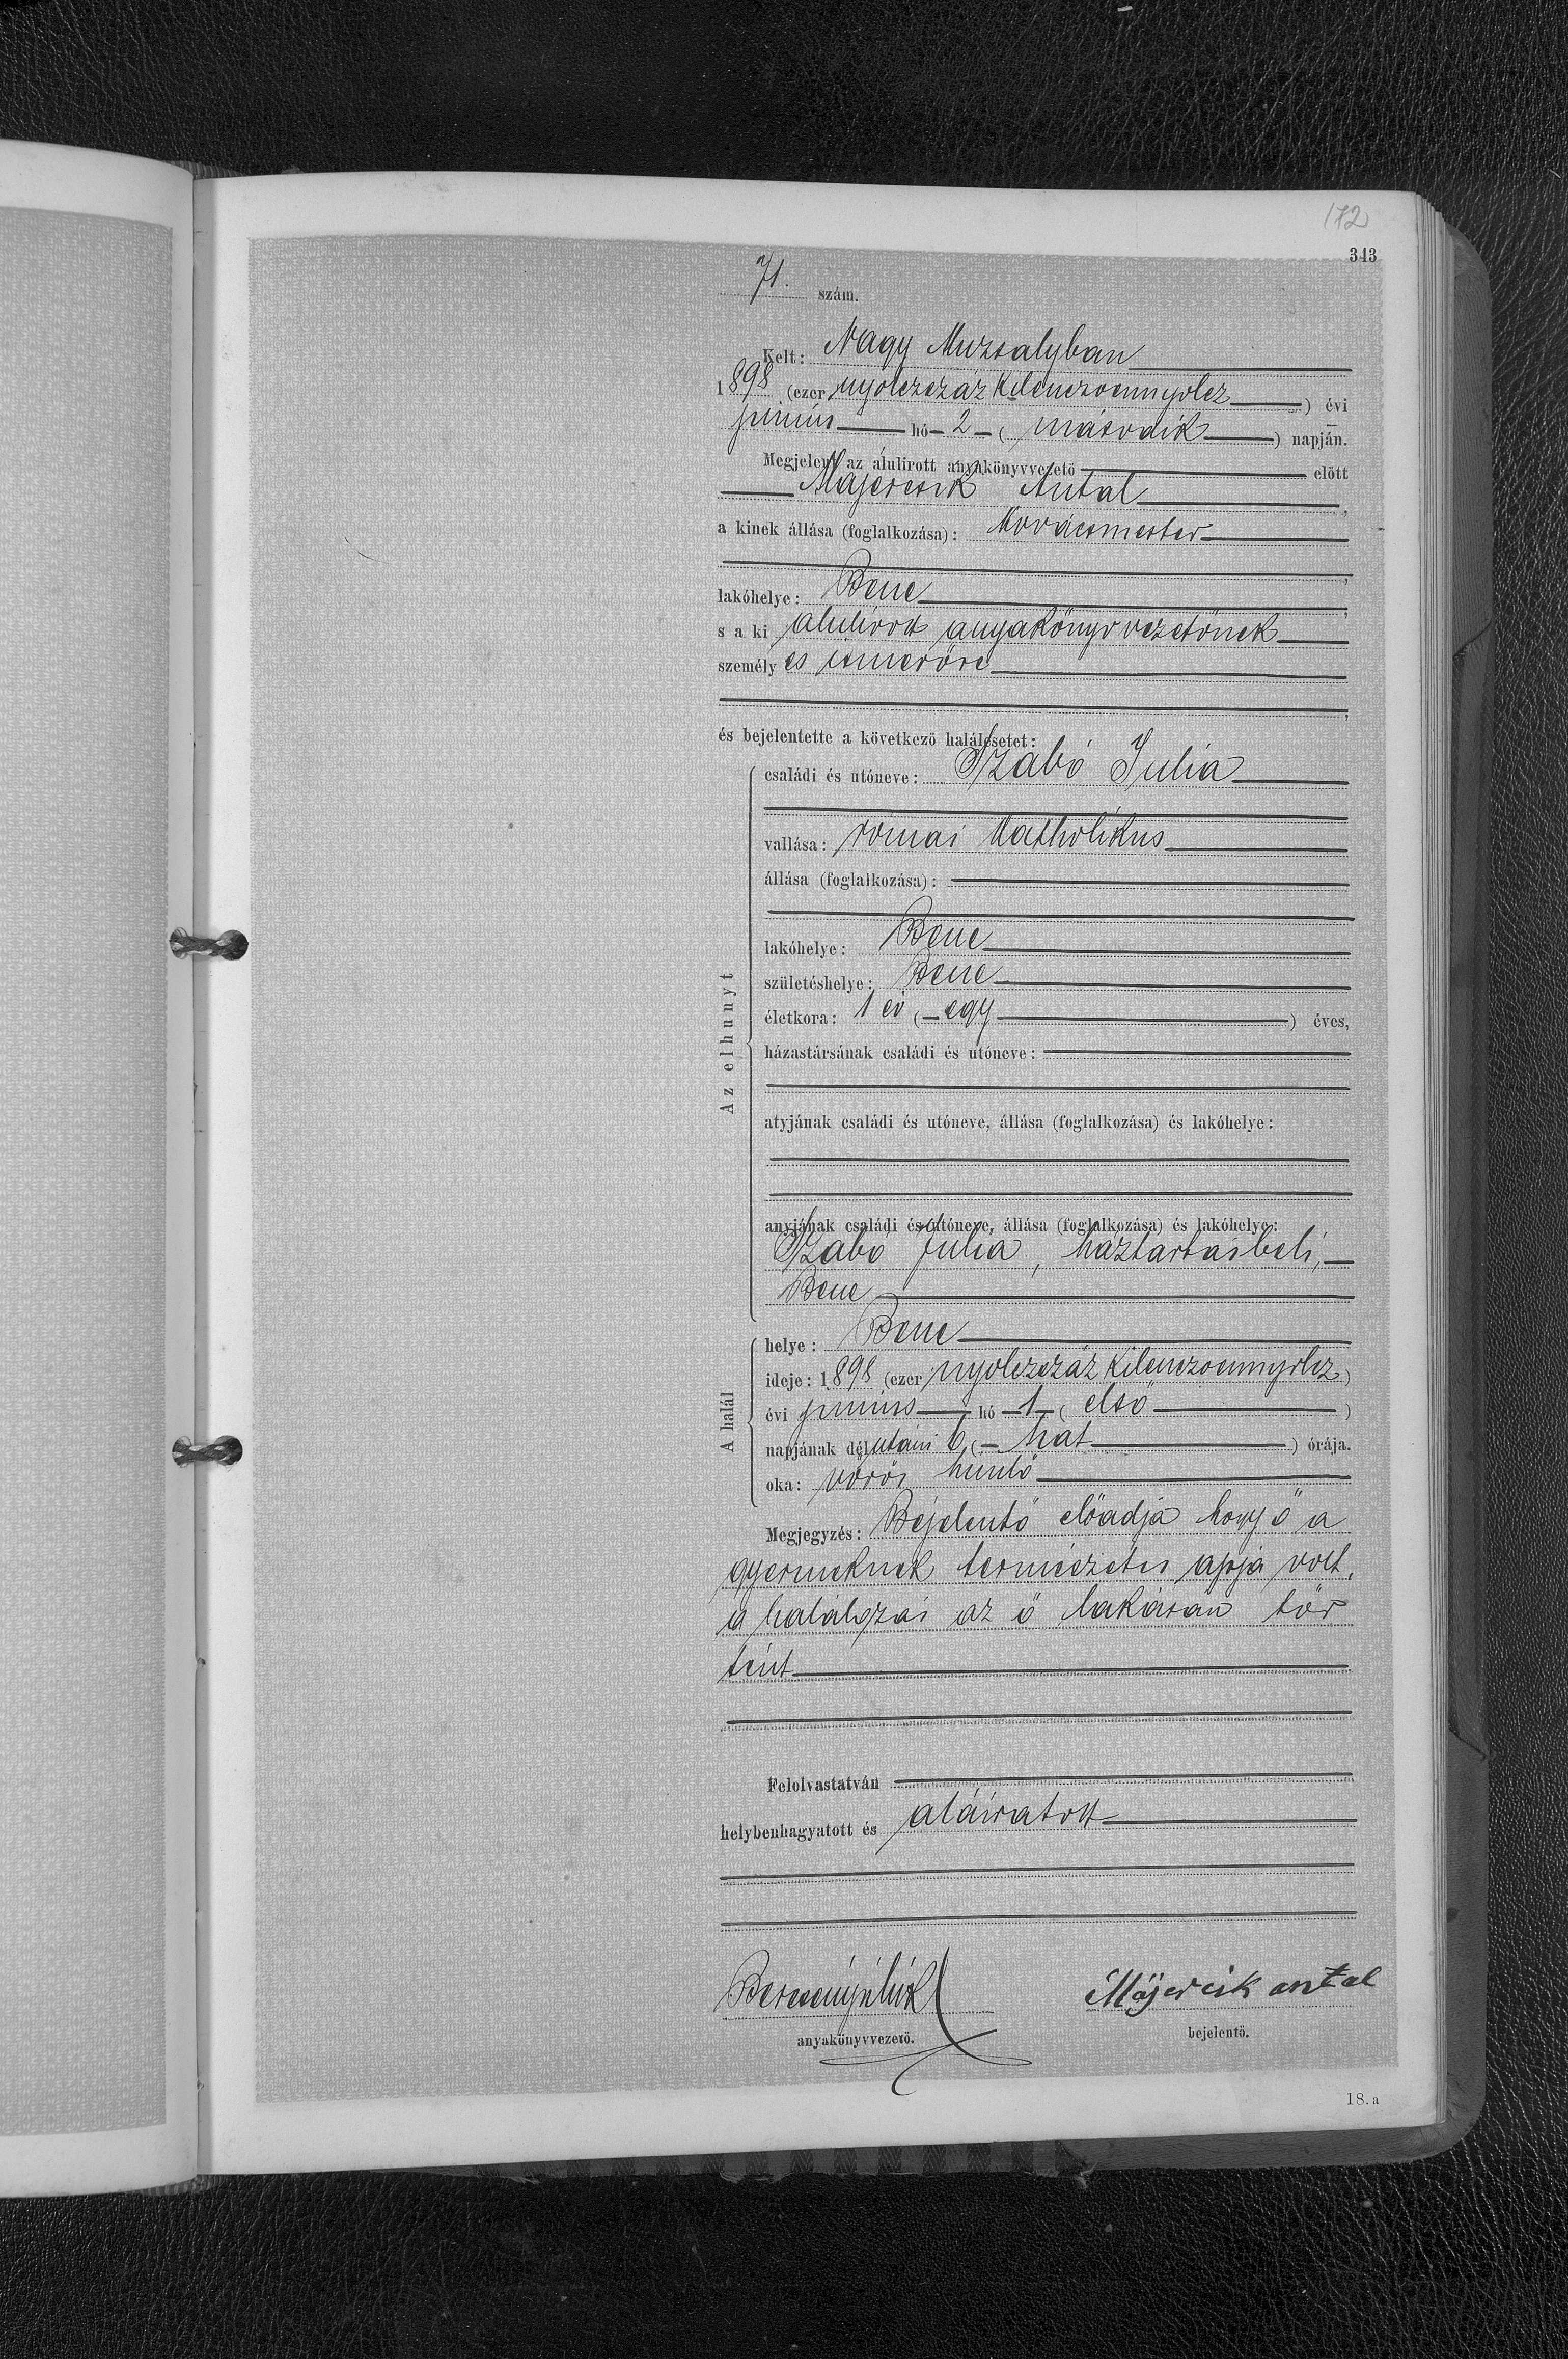 172
343
71. szám.
Kelt: Nagy Muzsalyban
1898 (ezer nyolczszáz kilenczvennyolcz) évi
junius hó 2 (második) napján.
Megjelent az alulirott anyakönyvvezető előtt
Majercsik Antal,
a kinek állása (foglalkozása): Kovácsmester
,
lakóhelye: Bene,
s a ki alulirott anyakönyvvezetőnek
személyes ismerőse
,
és bejelentette a következő halálesetet:
Az elhunyt
családi és utóneve: Szabó Julia
vallása: romai Katholikus
állása (foglalkozása):
lakóhelye: Bene
születéshelye: Bene
életkora: 1 év (egy) éves,
házastársának családi és utóneve:
atyjának családi és utóneve, állása (foglalkozása) és lakóhelye:
anyjának családi és utóneve, állása (foglalkozása) és lakóhelye:
Szabó Julia, háztartásbeli,
Bene
A halál
helye: Bene
ideje: 1898 (ezer nyolczszáz kilenczvennyolcz)
évi junius hó 1 (első)
napjának délutáni 6 (hat) órája.
oka: vörös himlő
Megjegyzés: Bejelentő előadja hogy ő a
gyermeknek természetes apja volt,
a halálozás az ő lakásán tör
tént
Felolvastatván
helybenhagyatott és aláiratott
Majercsik antal
anyakönyvvezető. bejelentő.
18.a